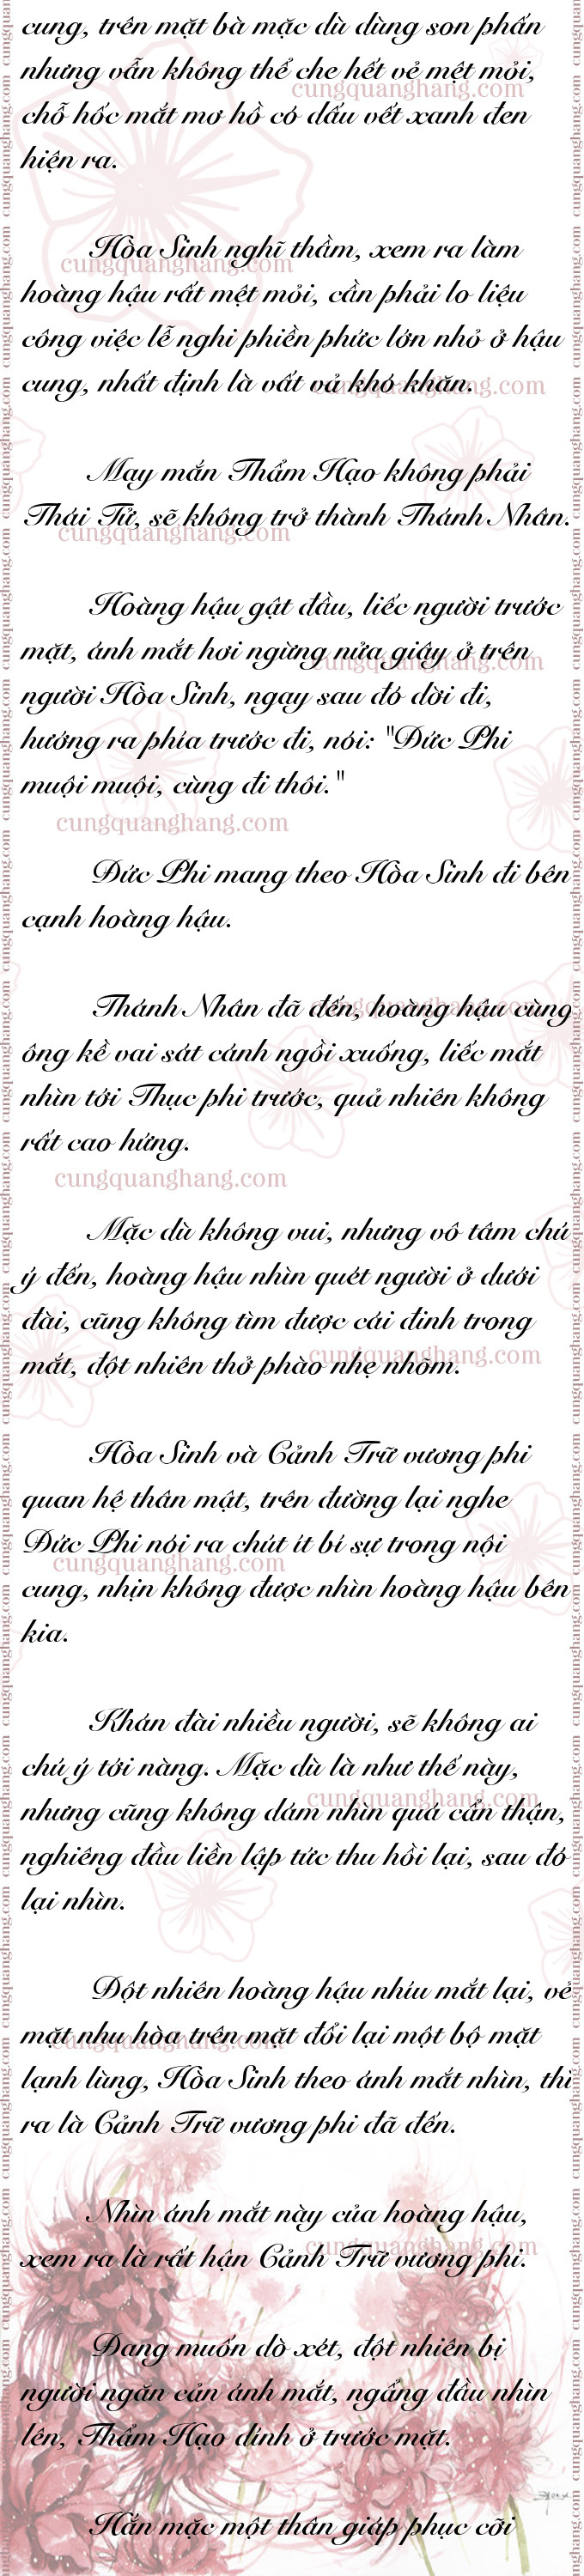 cung, trên mặt bà mặc dù dùng son phấn
nhưng vẫn không thể che hết vẻ mệt mỏi,
cungquanghang.com
chỗ hốc mắt mơ hồ có dấu vết xanh đen
hiện ra.
Hòa Sinh nghĩ thầm, xem ra làm
cungquanghang.com
hoàng hậu rất mệt mỏi, cần phải lo liệu
công việc lễ nghi phiền phức lớn nhỏ ở hậu
cung, nhất định là vất vả khó khăn.
cungquanghang.com
May mắn Thẩm Hạo không phải
Thái Tử, sẽ không trở thành Thánh Nhân.
cungquanghang.com
Hoàng hậu gật đầu, liếc người trước
mặt, ánh mắt hơi ngừng nửa giây ở trên
cungquanghang.com
người Hòa Sinh, ngay sau đó dời đi,
hướng ra phía trước đi, nói: "Đức Phi
muội muội, cùng đi thôi."
cungquanghang.com
Đức Phi mang theo Hòa Sinh đi bên
cạnh hoàng hậu.
Thánh Nhân đã đến, hoàng hậu cùng
cungquanghang.com
ông kề vai sát cánh ngồi xuống, liếc mắt
nhìn tới Thục phi trước, quả nhiên không
rất cao hứng.
cungquanghang.com
Mặc dù không vui, nhưng vô tâm chú
ý đến, hoàng hậu nhìn quét người ở dưới
đài, cũng không tìm được cái đinh trong
mắt, đột nhiên thở phào nhẹ nhõm.
cungquanghang.com
Hòa Sinh và Cảnh Trữ vương phi
quan hệ thân mật, trên đường lại nghe
Đức Phi nói ra chút ít bí sự trong nội
cungquanghang.com
cung, nhịn không được nhìn hoàng hậu bên
kia.
Khán đài nhiều người, sẽ không ai
chú ý tới nàng. Mặc dù là như thế này,
cungquanghang.com
nhưng cũng không dám nhìn quá cẩn thận,
nghiêng đầu liền lập tức thu hồi lại, sau đó
lại nhìn.
Đột nhiên hoàng hậu nhíu mắt lại, vẻ
mặt nhu hòa trên mặt đổi lại một bộ mặt
cungquanghang.com
lạnh lùng, Hòa Sinh theo ánh mắt nhìn, thì
ra là Cảnh Trữ vương phi đã đến.
Nhìn ánh mắt này của hoàng hậu,
cungquanghang.com
xem ra là rất hận Cảnh Trữ vương phi.
Đang muốn dò xét, đột nhiên bị
người ngăn cản ánh mắt, ngẩng đầu nhìn
lên, Thẩm Hạo dính ở trước mặt.
Hắn mặc một thân giáp phục cỡi